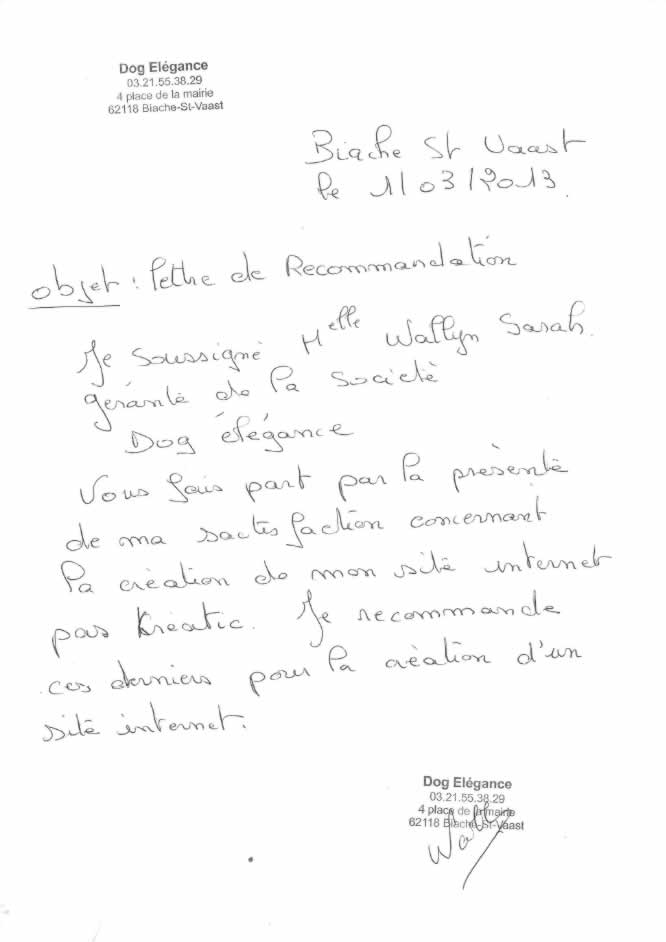 Dog Elégance
03.21.55.38.29
4 place de la mairie
62118 Biache-St-Vaast
Biache St Vaast
le 11/03/2013.
Objet : lettre de Recommandation
Je soussigné Melle Wallyn Sarah.
gérante de la société
Dog élégance
Vous fais part par la présente
de ma sactisfaction concernant
la création de mon site internet
par Kréatic. Je recommande
ces derniers pour la création d'un
site internet.
Dog Elégance
03.21.55.38.29
4 place de la mairie
62118 Biache-St-Vaast
Wall